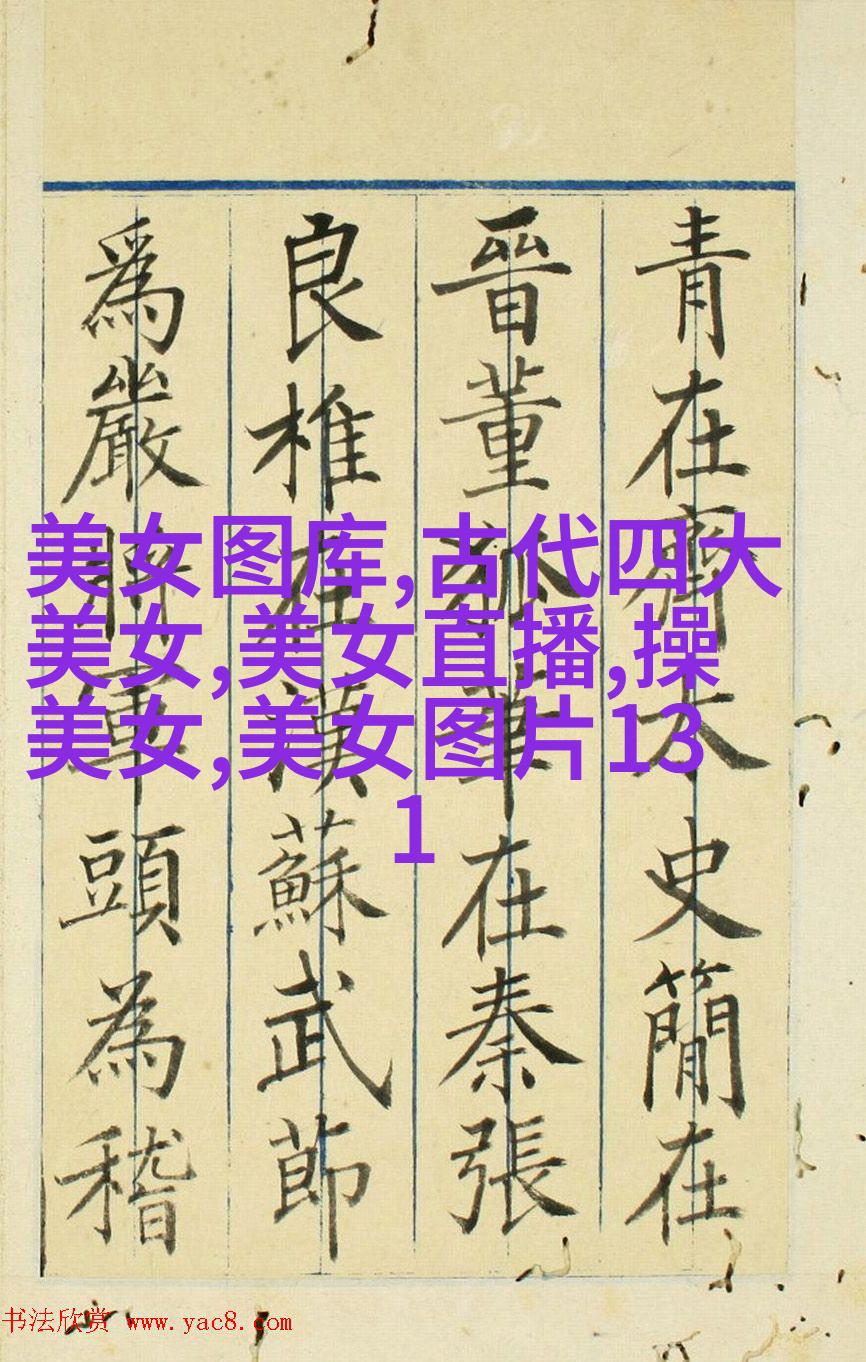 青在齊太史簡在
晉董狐筆在秦張
良椎在漢蘇武節
爲嚴將軍頭為稽
美女图库,古代四大
美女,美女直播,操
美女,美女图片13
1
书法欣赏 www.yac8.com